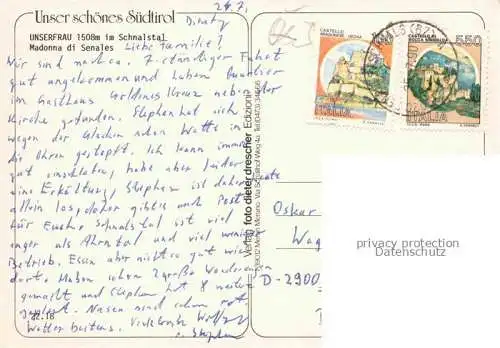 Unser schönes Südtirol
UNSERFRAU 1508m im Schnalstal
Madonna di Senales
24.7.
Dienstg
Liebe Familie!
Wir sind nach ca. 7-stündiger Fahrt
gut angekommen und haben Quartier
im Gasthaus Goldenes Kreuz neben der
Kirche gefunden. Stephan hat sich
wegen der Glocken schon Watte in
die Ohren gestopft. Ich kann immer
gut einschlafen, habe aber leider
eine Erkältung, Stephan ist daher
allein los, daher gibts auch Post
für Euch. Schnalstal ist viel
enger als Ahrntal und viel weniger
Betrieb. Essen aber nicht so gut wie
dort. Haben schon 2 große Wanderungen
gemacht und Stephan hat 8
Nasen sind schon rot.
Wetter bestens.
Stephan
dz.18
Verlag foto dieter drescher Edizioni
39012 Meran Merano
CASTELLO
ITALIA
CASTELLO DI
ROCCA SINIBALDA
550
ITALIA
Oskar
Wag
D-2900
privacy protection
Datenschutz